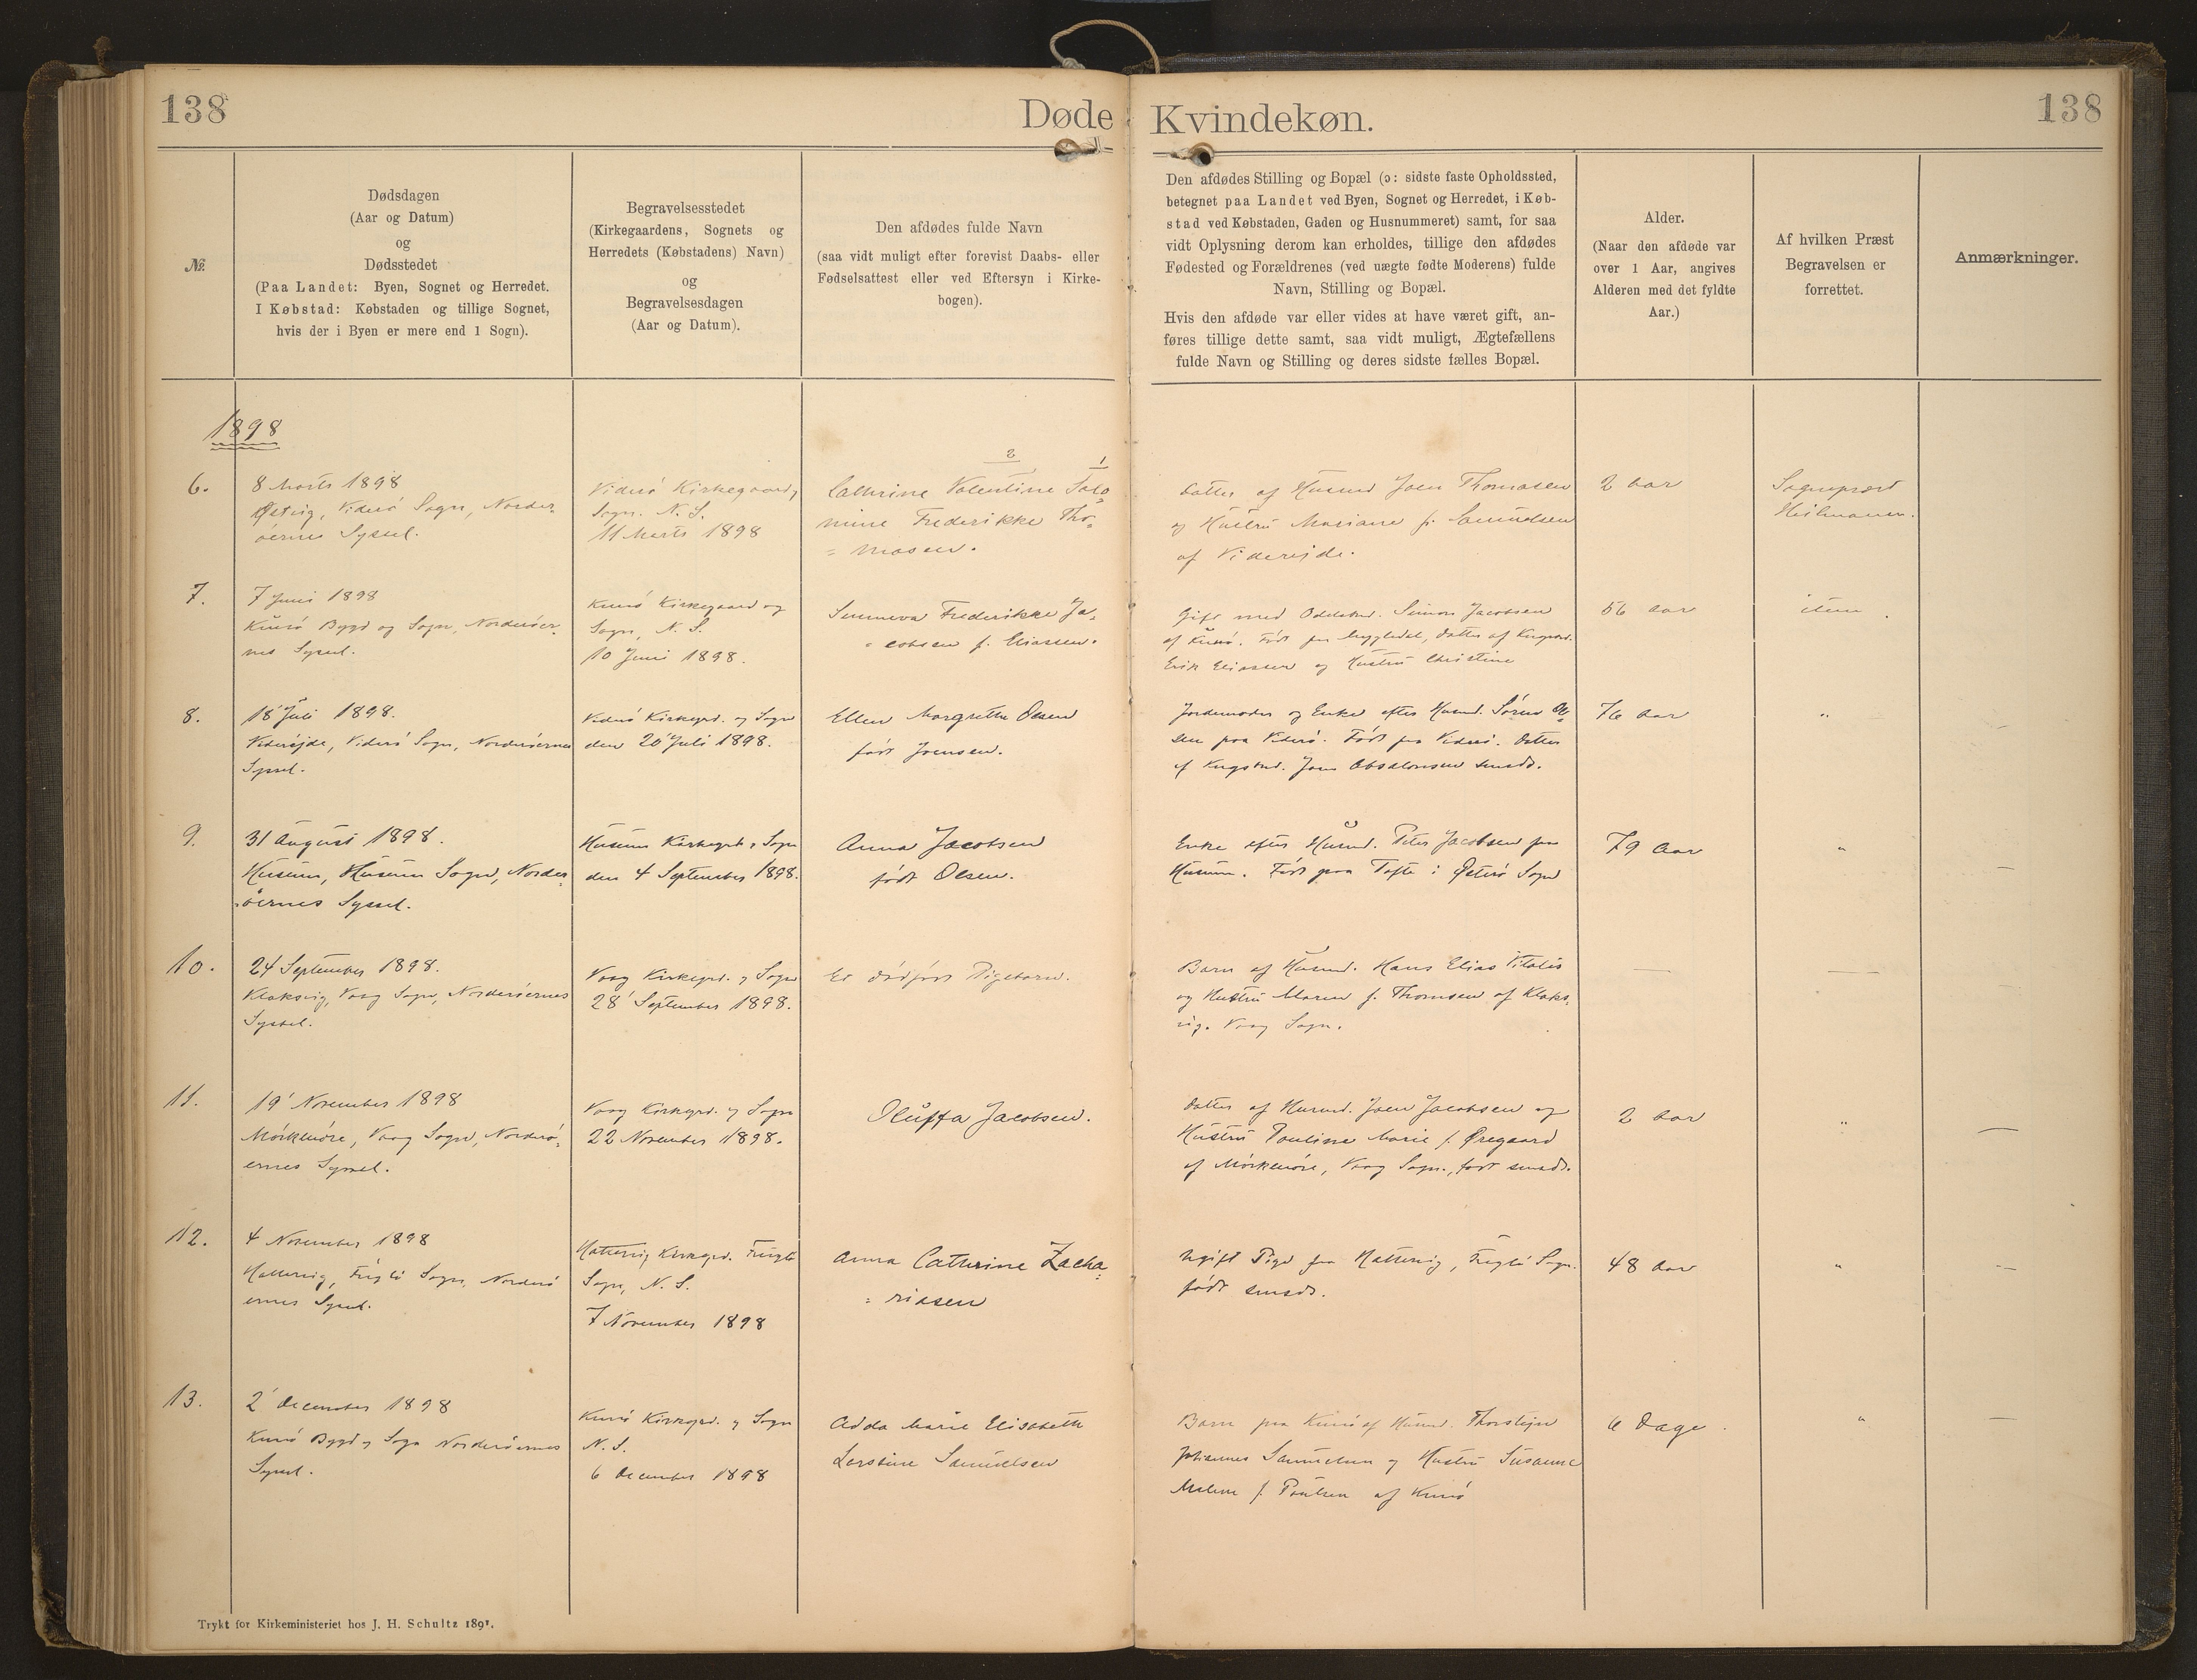 138
Døde
Kvindekøn.
138
№
Dødsdagen
(Aar og Datum)
og
Dødsstedet
(Paa Landet: Byen, Sognet og Herredet.
I Købstad: Købstaden og tillige Sognet,
hvis der i Byen er mere end 1 Sogn).
Begravelsesstedet
(Kirkegaardens, Sognets og
Herredets (Købstadens) Navn)
og
Begravelsesdagen
(Aar og Datum).
Den afdødes fulde Navn
(saa vidt muligt efter forevist Daabs- eller
Fødselsattest eller ved Eftersyn i Kirke-
bogen).
Den afdødes Stilling og Bopæl (ɔ: sidste faste Opholdssted,
betegnet paa Landet ved Byen, Sognet og Herredet, i Køb-
stad ved Købstaden, Gaden og Husnummeret) samt, for saa
vidt Oplysning derom kan erholdes, tillige den afdødes
Fødested og Forældrenes (ved uægte fødte Moderens) fulde
Navn, Stilling og Bopæl.
Hvis den afdøde var eller vides at have været gift, an-
føres tillige dette samt, saa vidt muligt, Ægtefællens
fulde Navn og Stilling og deres sidste fælles Bopæl.
Alder.
(Naar den afdøde var
over 1 Aar, angives
Alderen med det fyldte
Aar.)
Af hvilken Præst
Begravelsen er
forrettet.
Anmærkninger.
1898
6.
8 Marts 1898
Østvig, Viderö Sogn, Norder-
öernes Syssel.
Viderö Kirkegaard,
Sogn. N. S.
11 Marts 1898
2 1
Cathrine Valentine Salo
mine Frederikke Tho-
= masen.
Datter af Husmd Joen Thomasen
og Hustru Mariane f. Samuelsen
af Viderejde.
2 Aar
Sognepræst
Heilmann.
7.
7 Juni 1898
Kunö Bygd og Sogn, Norderöer-
nes Syssel.
Kunö Kirkegaard og
Sogn, N. S.
10 Juni 1898.
Sunneva Frederikke Ja-
= cobsen f. Eliassen.
Gift med Odelsbd. Simon Jacobsen
af Kunö. Født paa Mygledal, Datter af Kngsbd.
Erik Eliassen og Hustru Christine
56 Aar
item
8.
18' Juli 1898.
Viderejde, Viderö Sogn, Norderöernes
Syssel.
Viderö Kirkegrd. og Sogn
den 20' Juli 1898.
Ellen Margrethe Olsen
født Joensen.
Jordemoder og Enke efter Husmd. Sören Ol-
sen paa Viderö. Født paa Viderö. Datter
af Kngsbd. Joen Absalonsen smsds.
76 Aar
"
9.
31 August 1898.
Husum, Husum Sogn, Norder-
öernes Syssel.
Husum Kirkegrd. & Sogn
den 4 September 1898.
Anna Jacobsen
født Olsen.
Enke efter Husmd. Peter Jacobsen paa
Husum. Født paa Tofte i Østerö Sogn
79 Aar
"
—
10.
24 September 1898.
Klaksvig, Vaag Sogn, Norderöernes
Syssel.
Vaag Kirkegrd. og Sogn
28' September 1898.
Et dödfødt Pigebarn.
Barn af Husmd. Hans Elias Vitalis
og Hustru Maren f. Thomsen af Klaks-
vig. Vaag Sogn.
—
—
—
11.
19' November 1898
Mörkenöre, Vaag Sogn, Norderö-
ernes Syssel.
Vaag Kirkegrd. og Sogn
22 November 1898.
Oluffa Jacobsen.
Datter af Husmd. Joen Jacobsen og
Hustru Pouline Marie f. Øregaard
af Mörkenöre, Vaag Sogn, født smsds.
2 Aar
"
—
12.
4 November 1898
Hattervig, Fuglö Sogn, Norderö
ernes Syssel.
Hattervig Kirkegrd. Fuglö
Sogn, N. S.
7 November 1898
Anna Cathrine Zacha-
= riasen
Ugift Pige fra Hattervig, Fuglö Sogn.
født smsds.
48 Aar
"
—
13.
2' December 1898
Kunö Bygd og Sogn Norderöernes
Syssel.
Kunö Kirkegrd. og Sogn
N. S.
6 December 1898
Adda Marie Elisabeth
Samuelsen
Barn paa Kunö af Husmd. Thorstejn
Johannes Samuelsen og Hustru Susanne
Malene f. Poulsen af Kunö
6 Dage.
"
—
Trykt for Kirkeministeriet hos J. H. Schultz 1891.